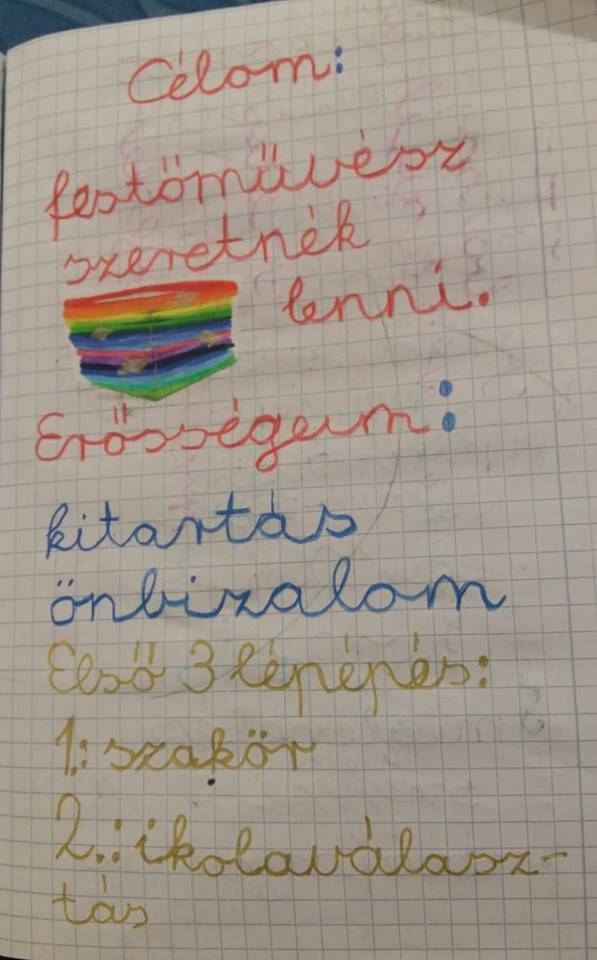 Célom:
festőművész
szeretnék
lenni.
Erősségeim:
kitartás
önbizalom
Első 3 lépépés:
1.: szakör
2.: ikolaválasz-
tás